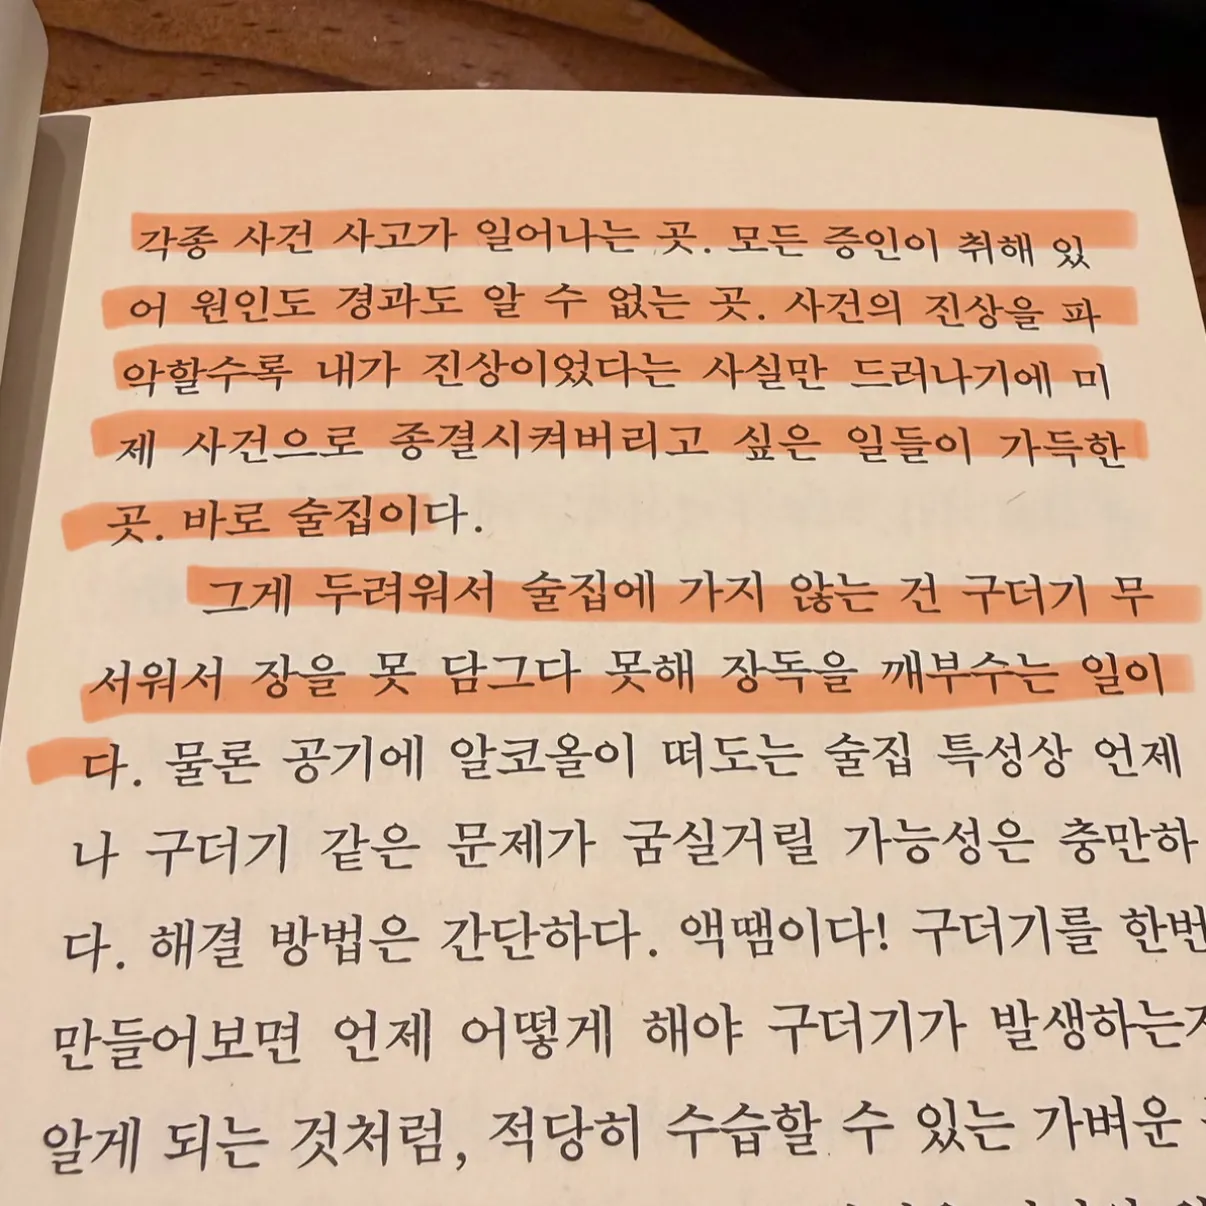 각종 사건 사고가 일어나는 곳. 모든 증인이 취해 있
어 원인도 경과도 알 수 없는 곳. 사건의 진상을 파
악할수록 내가 진상이었다는 사실만 드러나기에 미
제 사건으로 종결시켜버리고 싶은 일들이 가득한
곳. 바로 술집이다.
그게 두려워서 술집에 가지 않는 건 구더기 무
서워서 장을 못 담그다 못해 장독을 깨부수는 일이
다. 물론 공기에 알코올이 떠도는 술집 특성상 언제
나 구더기 같은 문제가 굼실거릴 가능성은 충만하
다. 해결 방법은 간단하다. 액땜이다! 구더기를 한번
만들어보면 언제 어떻게 해야 구더기가 발생하는지
알게 되는 것처럼, 적당히 수습할 수 있는 가벼운